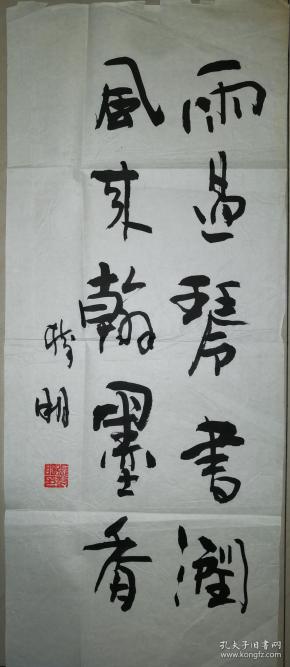 雨過琴書潤
風來翰墨香
明
孔夫子旧书网
www.kongfz.com